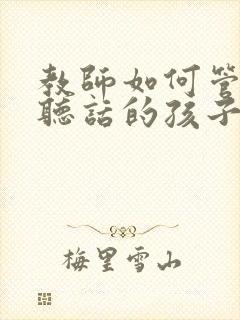 教師如何管
聽話的孩子
梅里雪山